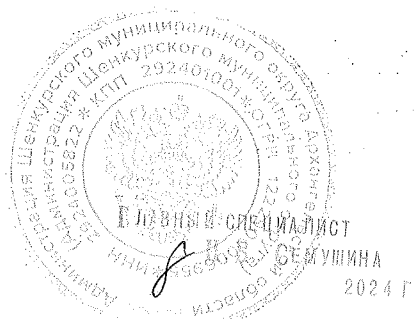 Администрация Шенкурского муниципального округа Арханге
ской области
(Администрация Шенкурского муниципального
2924005822 * КПП 292401001 * ОГРН 122
ИНН
ГЛАВНЫЙ СПЕЦИАЛИСТ
СЕМУШИНА
2024 Г